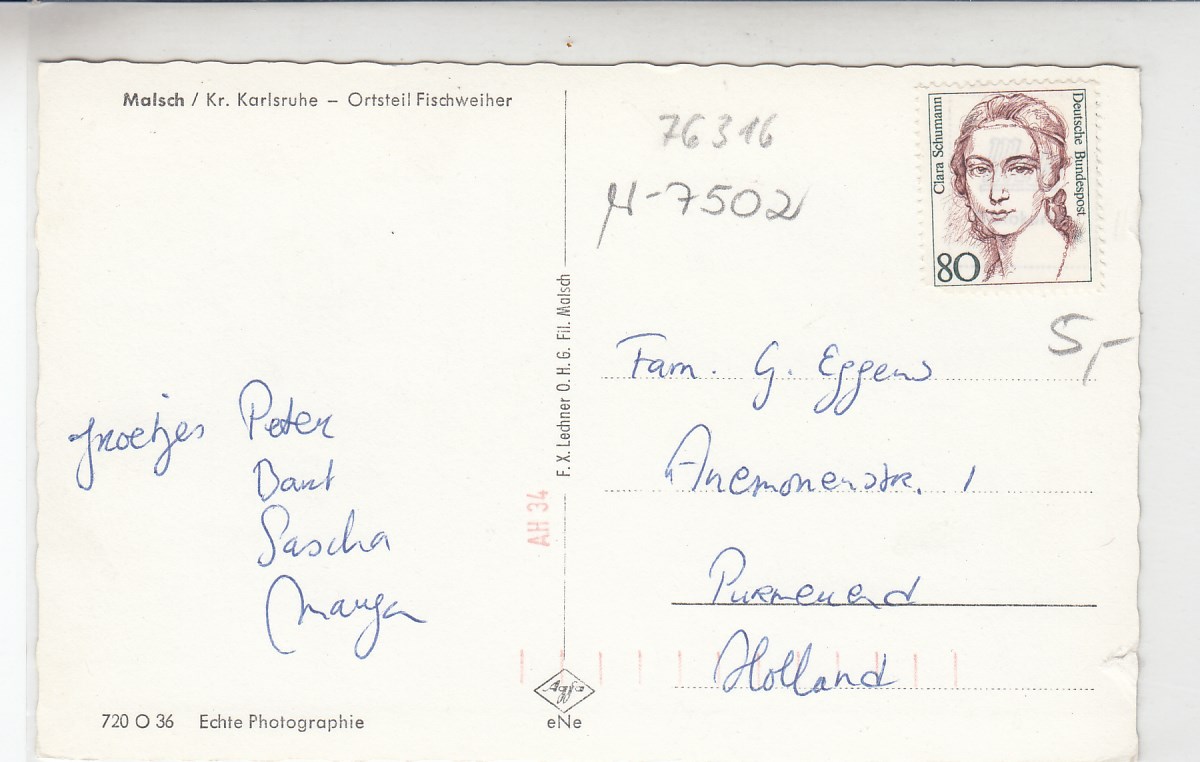 Malsch / Kr. Karlsruhe – Ortsteil Fischweiher
76316
H-7502
Clara Schumann
Deutsche Bundespost
80
5,-
Fam. G. Eggens
Anemonenstr. 1
Purmerend
Holland
groetjes Peter
Bart
Sascha
Marga
F. X. Lechner O. H. G. Fil. Malsch
AH 34
720 O 36 Echte Photographie
Agfa
eNe